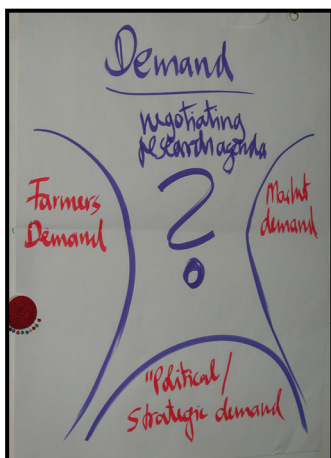 Demand
negotiating
research agenda
?
Farmers
Demand
Market
demand
"Political/
Strategic demand